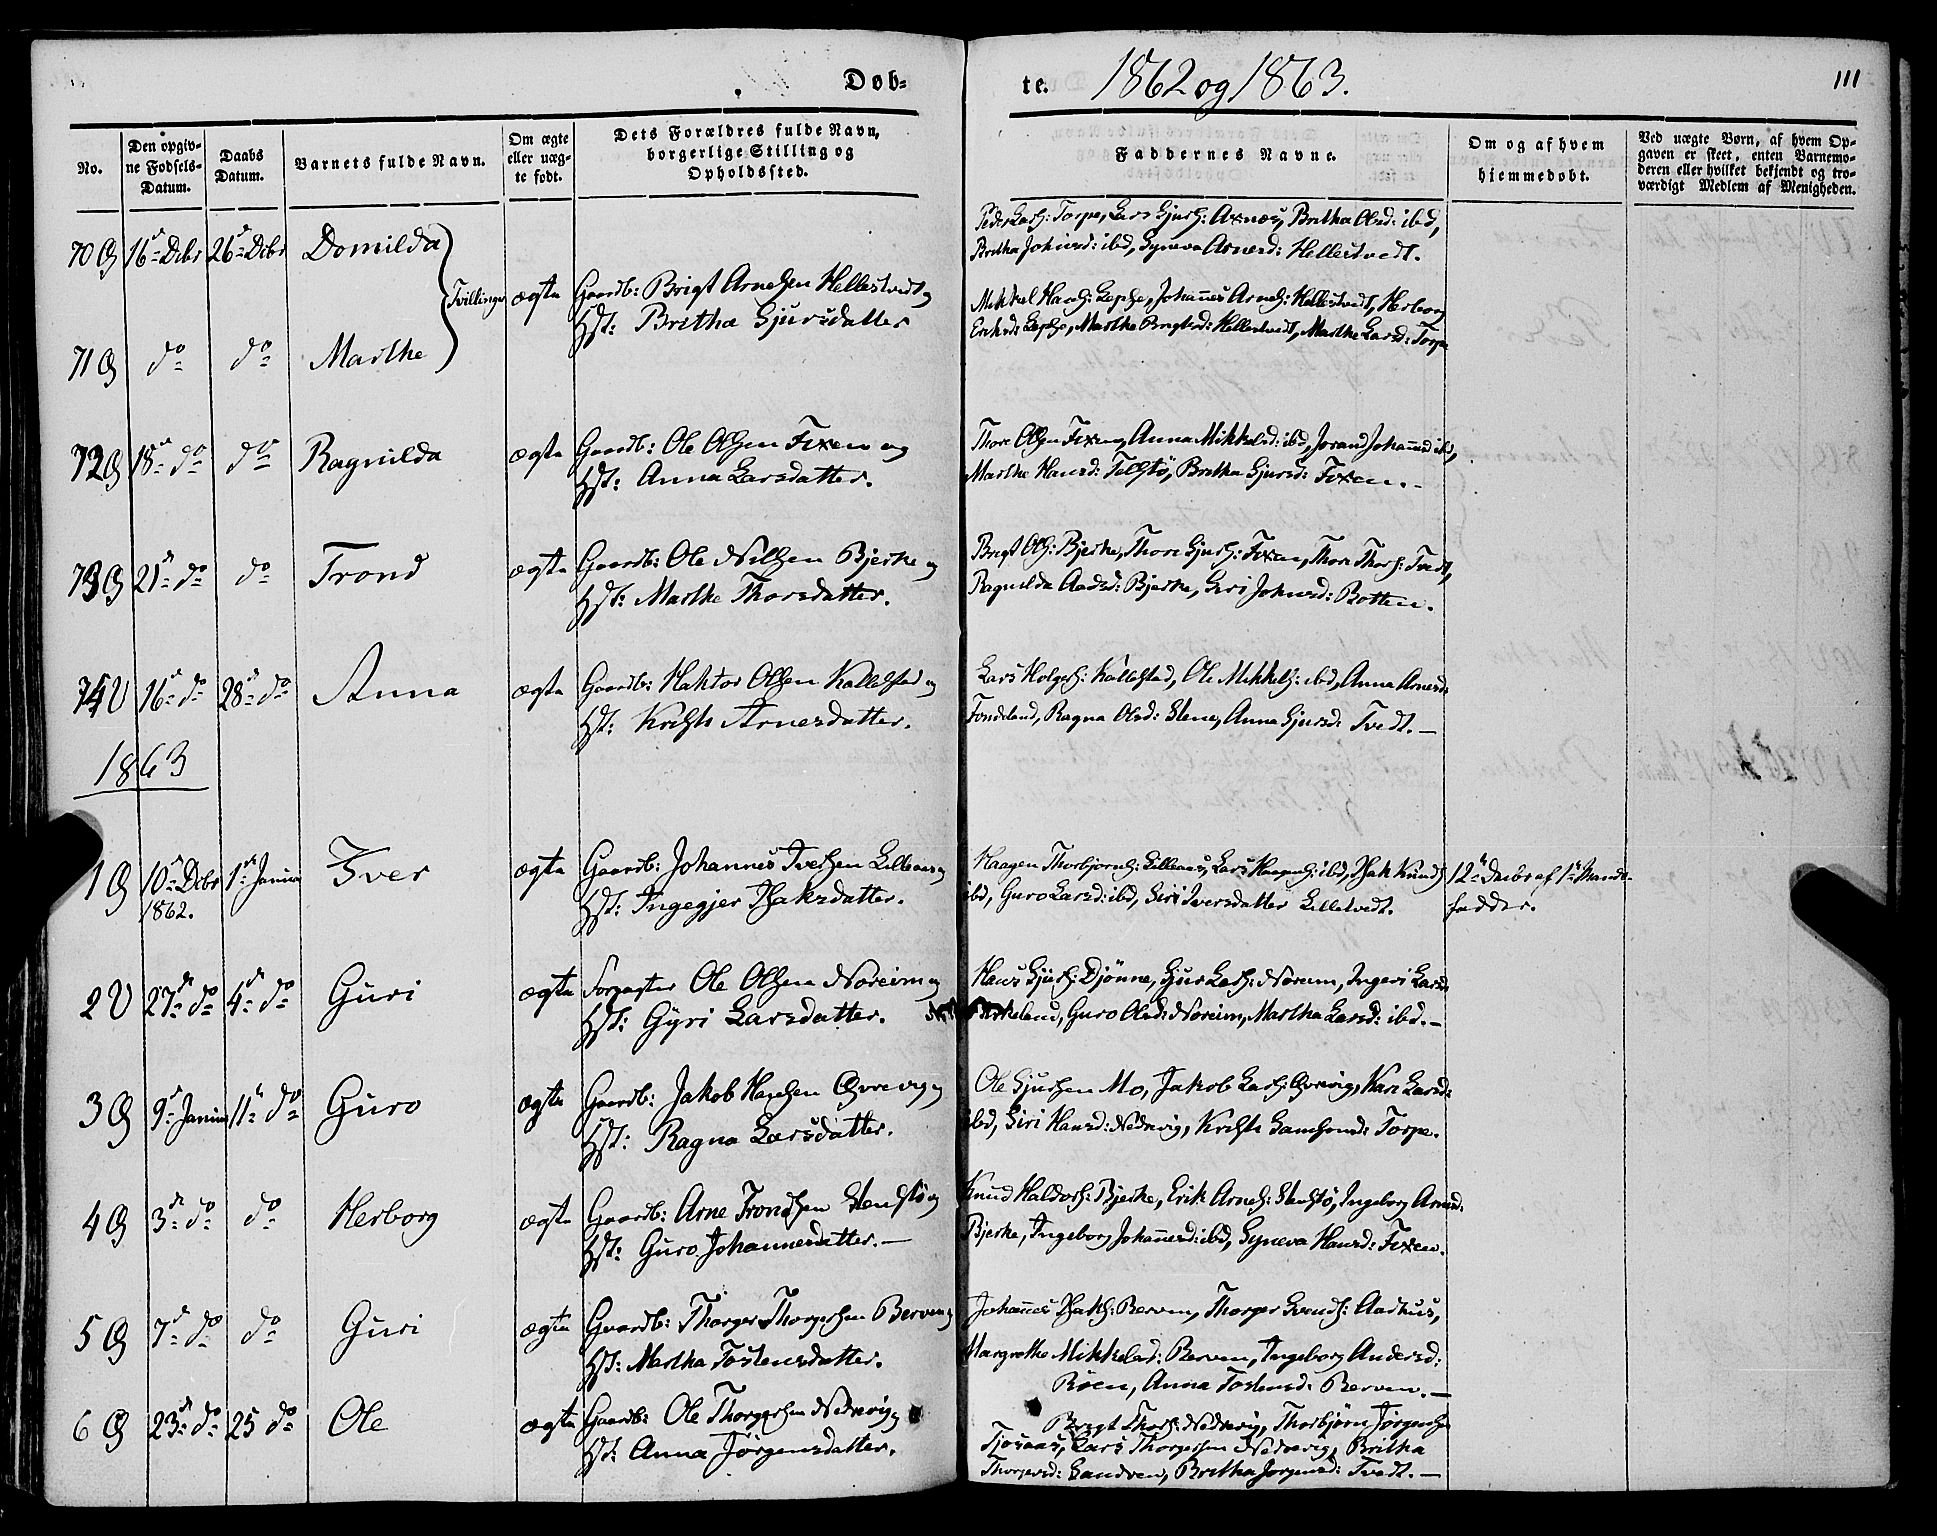 Døb=
te. 1862 og 1863. 111
No.
Den opgiv-
ne Fødsels-
Datum.
Daabs
Datum.
Barnets fulde Navn.
Om ægte
eller uæg-
te født.
Dets Forældres fulde Navn,
borgerlige Stilling og
Opholdssted.
Faddernes Navne.
Om og af hvem
hjemmedøbt.
Ved uægte Børn, af hvem Op-
gaven er skeet, enten Barnemo-
deren eller hvilket bekjendt og tro-
værdigt Medlem af Menigheden.
70 G 16de Dcbr 26de Dcbr Domilda
71 G do do Marthe
Tvillinger ægte
Gaardb: Brigt Arnesen Hellestvedt og
Hst: Britha Sjursdatter
Peder Lars: Torpe, Lars Sjurs: Axnæs, Britha Olsd: ibd,
Britha Johnsd: ibd, Syneva Arnesd: Hellestvedt.
Mikkel Hans: Lepsø, Johannes Arnes: Hellestvedt, Herborg
Eriksd: Lepsø, Marthe Brigtsd: Hellestvedt, Marthe Larsd: Torpe
72 G 18de do do Ragnilda ægte Gaardb: Ole Olsen Fixen og
Hst: Anna Larsdatter.
Thore Olsen Fixen, Anna Mikkelsd: ibd, Jorand Johannesd ibd,
Marthe Hansd: Tolstø, Britha Sjursd: Fixen.-
73 G 21de do do Trond ægte Gaardb: Ole Nilsen Bjerke og
Hst: Marthe Thorsdatter.
Brigt Ols: Bjerke, Thore Sjurs: Fixen, Thore Thors: Tvedt,
Ragnilda Aadsd: Bjerke, Siri Johnsd: Botten.
74 U 16de do 28de do Anna ægte Gaardb: Haktor Olsen Kallestad og
Hst: Kristi Arnesdatter.
Lars Holges: Kallestad, Ole Mikkels: ibd, Anna Arnesd:
Fondeland, Ragna Olsd: Stene, Anna Sjursd: Tvedt.-
1863
1 G 10de Dcbr 1ste Januar Iver ægte Gaardb: Johannes Iversen Lilleaas og
1862.
Hst: Ingegjer Isaksdatter.
Haagen Thorbjørns: Lilleaas, Lars Haagens: ibd, Isak Knuds:
ibd, Guro Larsd: ibd, Siri Iversdatter Lilletvedt.
12te Decbr af 1ste Mands-
fadder.
2 U 27de do 4de do Guri ægte Forpagter Ole Olsen Noreim og
Hst: Gyri Larsdatter.
Hans Sjurs: Djønne, Sjur Lars: Noreim, Ingeri Larsd:
Birkeland, Guro Olsd: Noreim, Martha Larsd: ibd.-
3 G 9de Januar 11te do Guro ægte Gaardb: Jakob Hansen Øvrevig og
Hst: Ragna Larsdatter.
Ole Sjursen Mo, Jakob Lars: Øvrevig, Kari Larsd:
ibd, Siri Hansd: Nedrevig, Kristi Samsonsd: Torpe.
4 G 3de do do Herborg ægte Gaardb: Arne Trondsen Stenstø og
Hst: Guro Johannesdatter.-
Knud Haldors: Bjerke, Erik Arnes: Stenstø, Ingeborg Arnesd:
Bjerke, Ingeborg Johannesd: ibd, Syneva Hansd: Fixen.
5 G 7de do do Guri ægte Gaardb: Thorger Thorgersen Berven og
Hst: Martha Tostensdatter.
Johannes Isaks: Berven, Thorger Svends: Aadhus,
Margrethe Mikkelsd: Berven, Ingeborg Andersd:
Røen, Anna Tostensd: Berven.-
6 G 23de do 25 do Ole ægte Gaardb: Ole Thorgersen Nedrevig og
Hst: Anna Jørgensdatter.
Brigt Thors: Nedrevig, Thorbjørn Jørgensen
Tjosaas, Lars Thorgersen Nedrevig, Britha
Thorgersd: Sandven, Britha Jørgensd: Tvedt.-